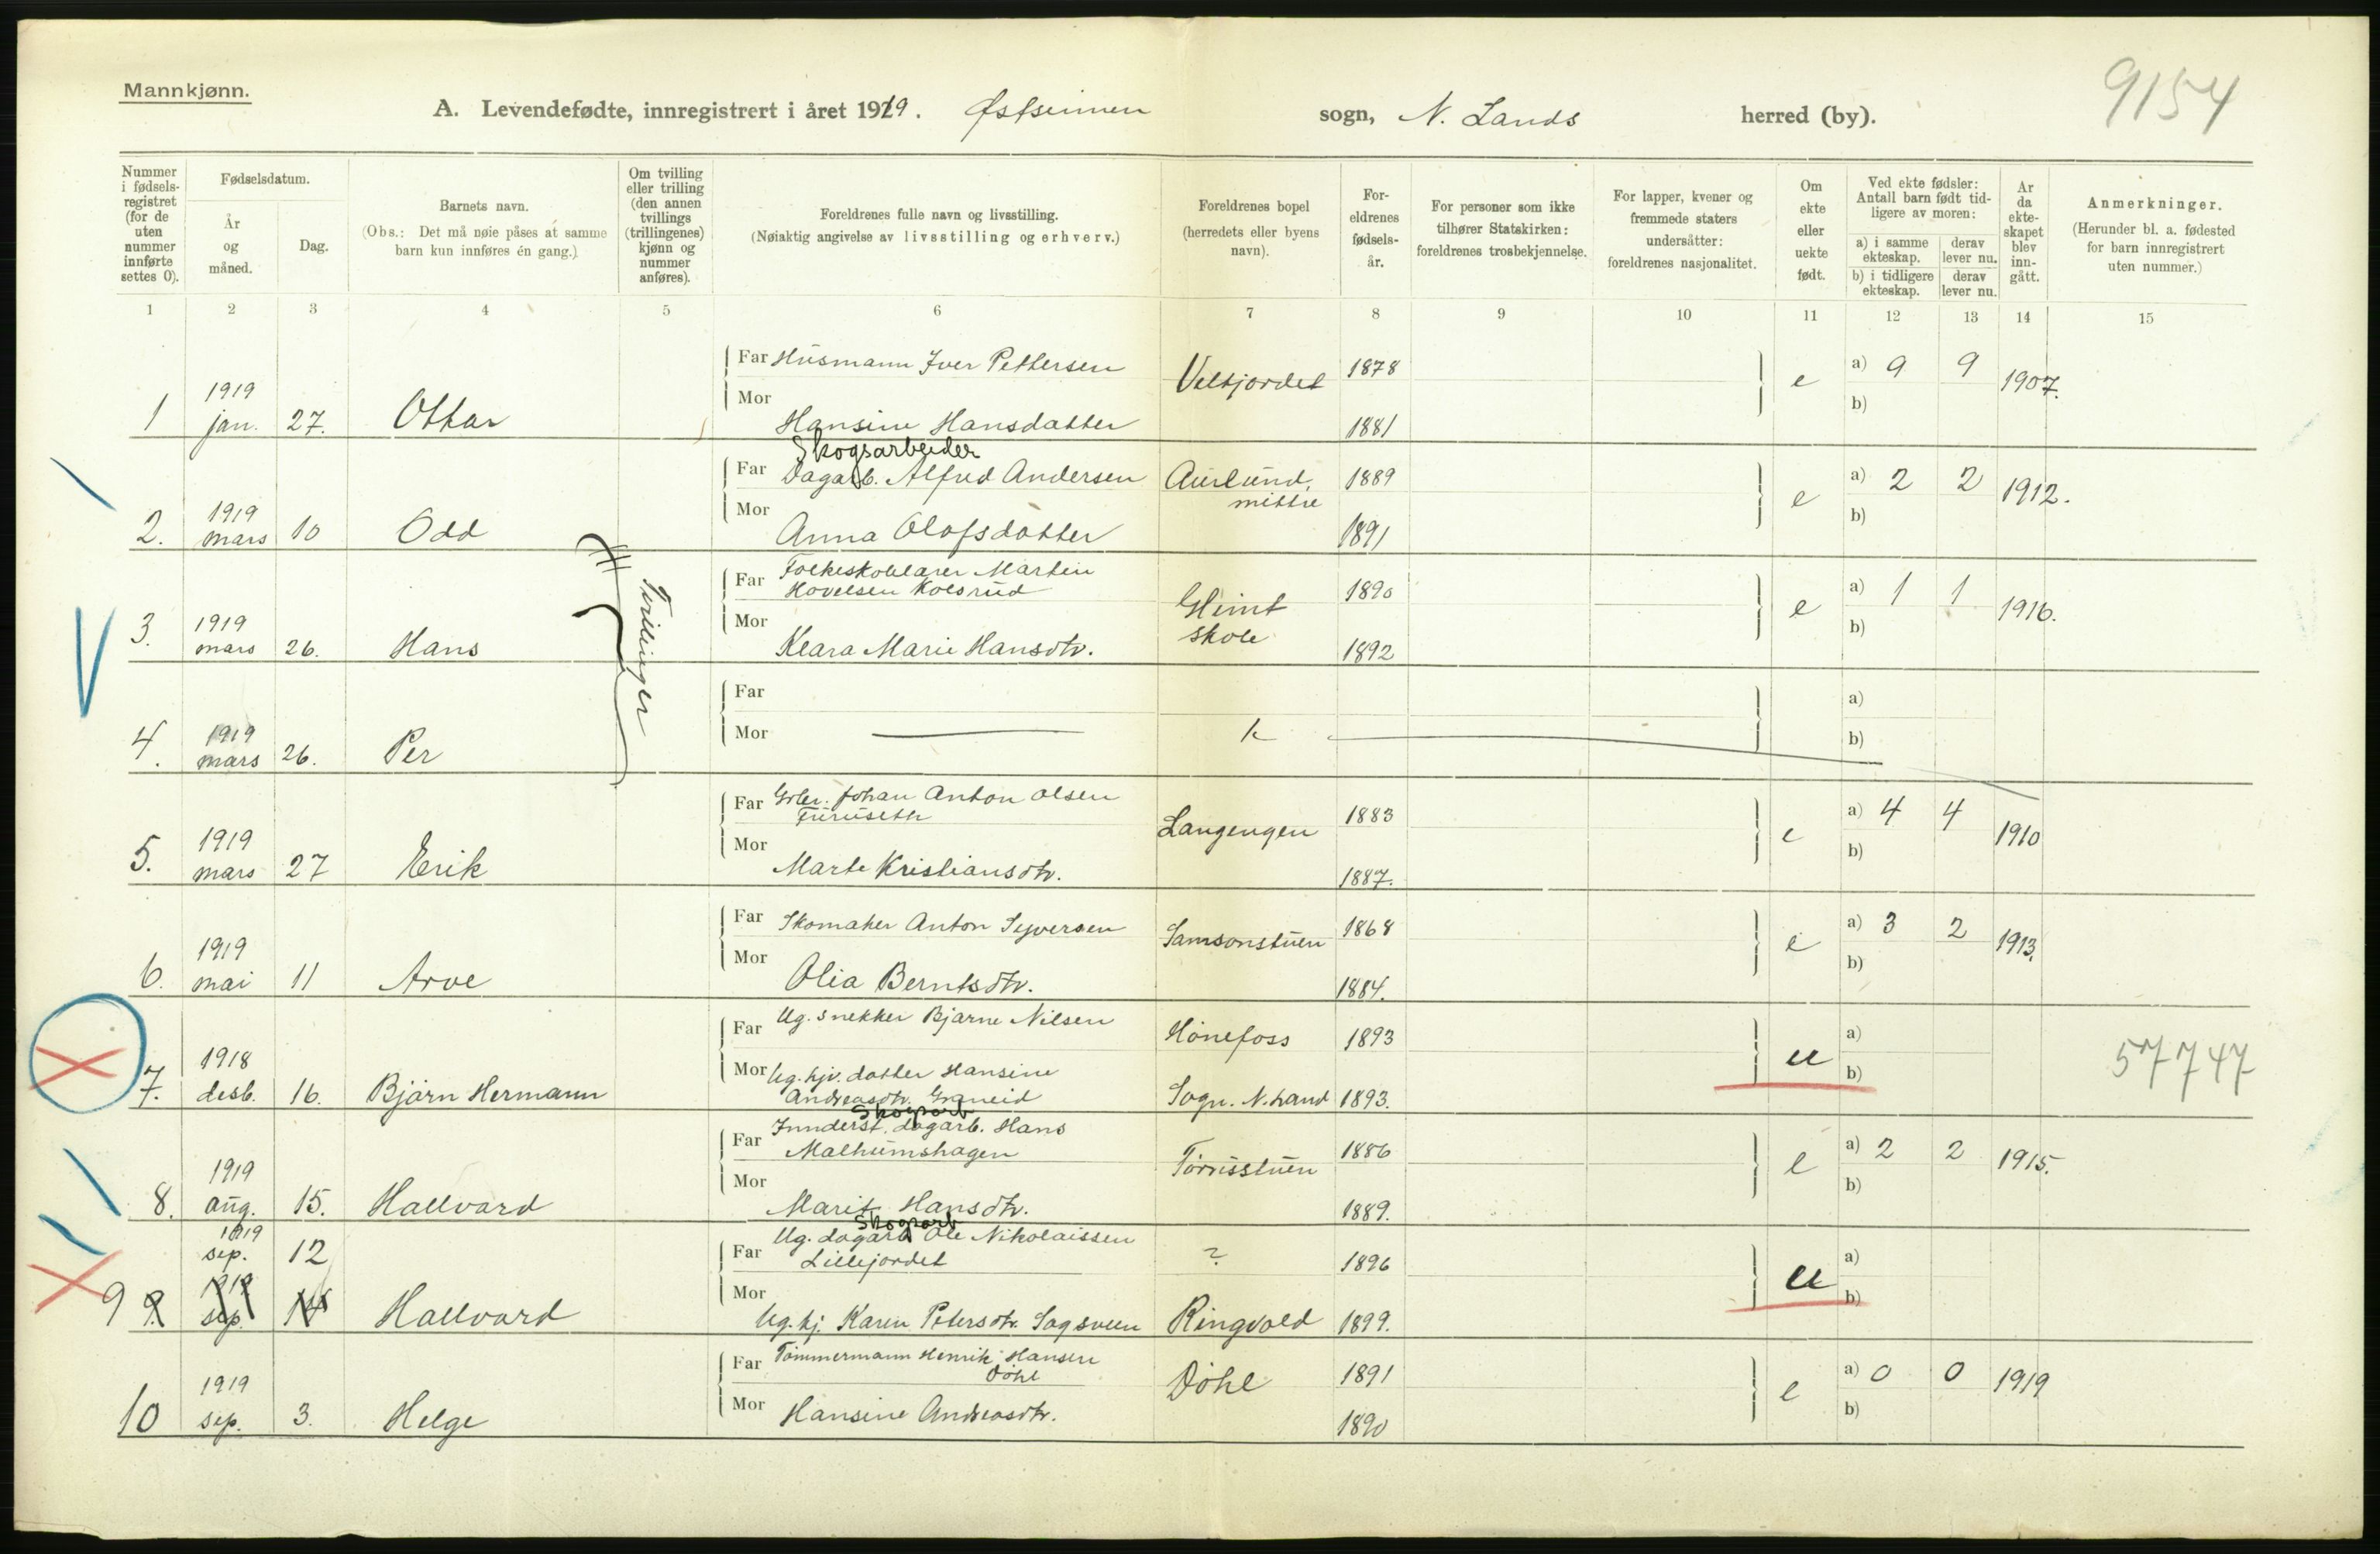 Mannkjønn.
9154
A. Levendefødte, innregistrert i året 1919. Østsinnen sogn, N. Lands herred (by).
Nummer i fødsels-registret (for de uten nummer innførte settes 0).
Fødselsdatum.
År og måned.
Dag.
Barnets navn.
(Obs.: Det må nøie påses at samme barn kun innføres én gang.)
Om tvilling eller trilling (den annen tvillings (trillingenes) kjønn og nummer anføres).
Foreldrenes fulle navn og livsstilling.
(Nøiaktig angivelse av livsstilling og erhverv.)
Foreldrenes bopel (herredets eller byens navn).
For-eldrenes fødsels-år.
For personer som ikke tilhører Statskirken: foreldrenes trosbekjennelse.
For lapper, kvener og fremmede staters undersåtter: foreldrenes nasjonalitet.
Om ekte eller uekte født.
Ved ekte fødsler: Antall barn født tid-ligere av moren:
a) i samme ekteskap.
derav lever nu.
b) i tidligere ekteskap.
derav lever nu.
År da ekte-skapet blev inn-gått.
Anmerkninger.
(Herunder bl. a. fødested for barn innregistrert uten nummer.)
1 2 3 4 5 6 7 8 9 10 11 12 13 14 15
Far Husmann Iver Pettersen
1919 1878 a) 9 9
1 jan. 27. Ottar Veltjordet e 1907.
Mor Hansine Hansdatter 1881 b)
Skogsarbeider
Far Dagarb. Alfred Andersen Aurlund, 1889 a) 2 2
1919 mittre 1912.
2. mars 10 Odd e
Mor Anna Olafsdatter 1891 b)
Tvillinger
Far Folkeskolelærer Martin
Hovelsen Kolsrud 1890 a) 1 1
1919 Glimt
3. mars 26. Hans skole e 1916.
Mor Klara Marie Hansdtr. 1892 b)
Far a)
1919
4. mars 26. Per
Mor b)
Far Grbr. Johan Anton Olsen
Furuseth 1883 a) 4 4
1919
5. mars 27 Erik Langengen e 1910
Mor Marte Kristiansdtr. 1887. b)
Far Skomaker Anton Syversen 1868 a) 3 2
1919 Samsonstuen
6. mai 11 Arve e 1913.
Mor Olia Berntsdtr. 1884. b)
Far Ug. snekker Bjarne Nilsen Hønefoss 1893 a)
1918
7. desb. 16. Bjørn Hermann u 57747
Mor Ug. hjv. datter Hansine
Andreasdtr. Graneid Sogn. N. Land 1893. b)
Skogsarb
Far Innderst, dagarb. Hans
Malhumshagen 1886 a) 2 2
1919
8. aug. 15. Hallvard e 1915.
Mor Marit Hansdtr. 1889. b)
Skogsarb
1919
Far Ug. dagarb Ole Nikolaissen
sep. 12 Lillejordet ? 1896 a)
1919
9 9. sep. Hallvard u
Mor Ug. hj. Karen Petersdtr. Sagsveen Ringvold 1899. b)
Far Tømmermann Henrik Hansen
Døhl 1891 a) 0 0
1919 Døhl
10 sep. 3. Helge e 1919
Mor Hansine Andreasdtr. 1890 b)